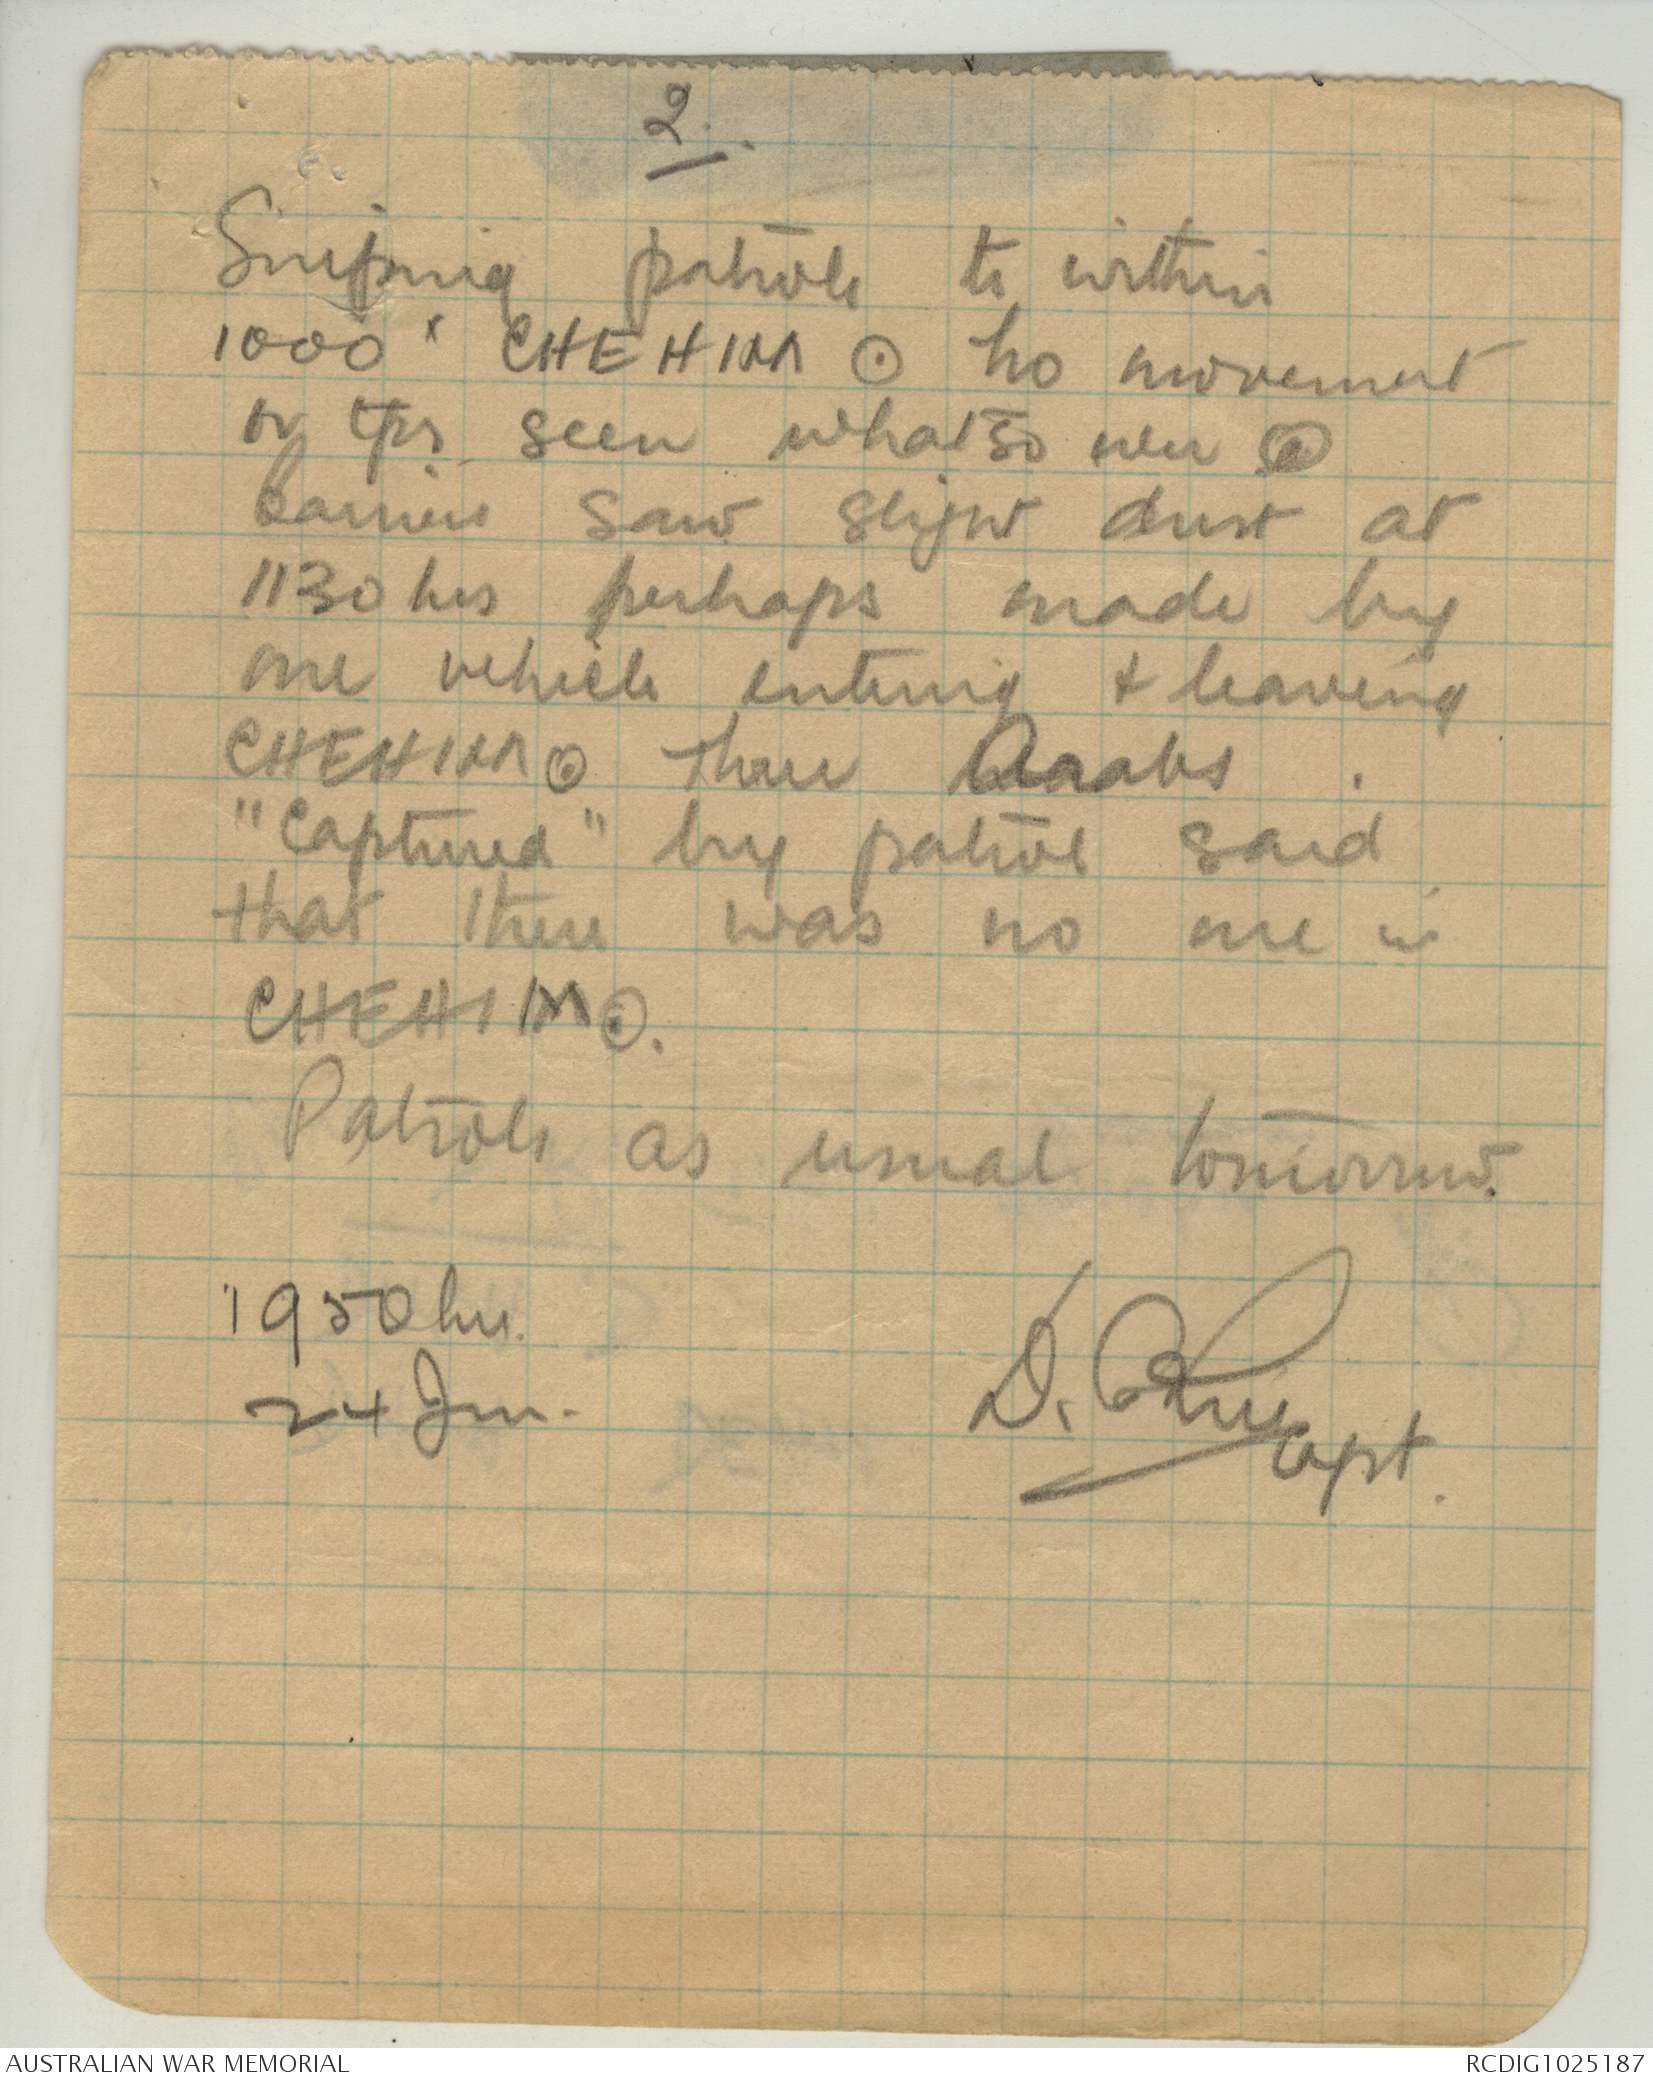 2.
Sniping patrols to within
1000 x CHEHIM ⊙ no movement
or tps seen whatso ever ⊙
carriers saw slight dust at
1130 hrs perhaps made by
one vehicle entering & leaving
CHEHIM ⊙ three Arabs .
"captured" by patrol said
that there was no one in
CHEHIM ⊙.
Patrols as usual tomorrow.
1950 hrs.
24 Jun.
D. Capt.
AUSTRALIAN WAR MEMORIAL
RCDIG1025187